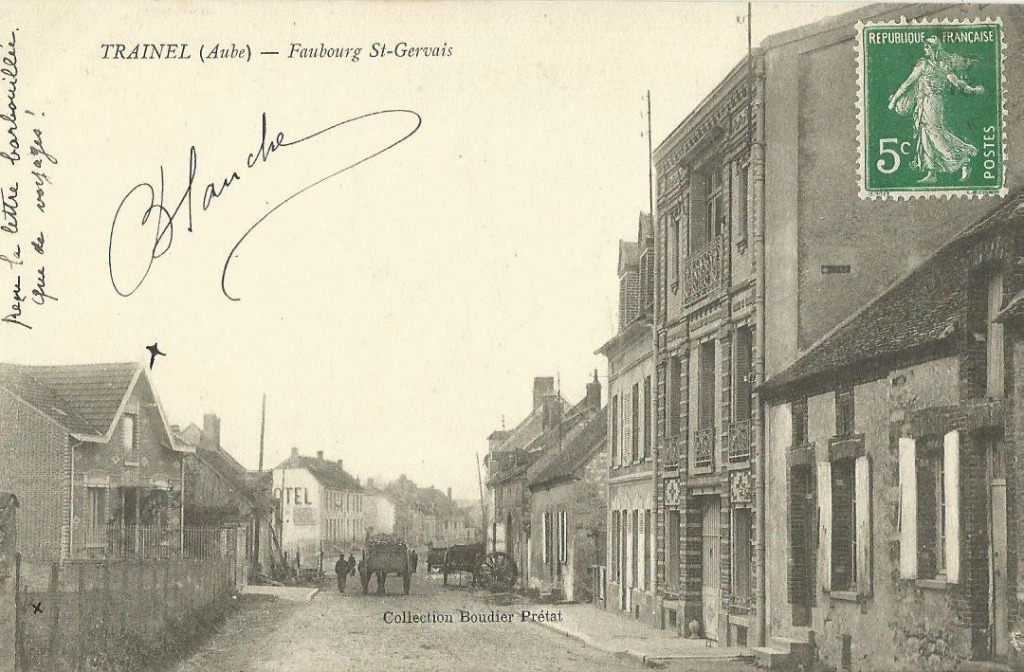 TRAINEL (Aube) — Faubourg St-Gervais
la lettre barbouillée
que de voyages !
Blanche
REPUBLIQUE FRANÇAISE
5c
POSTES
OTEL
Collection Boudier Prétat